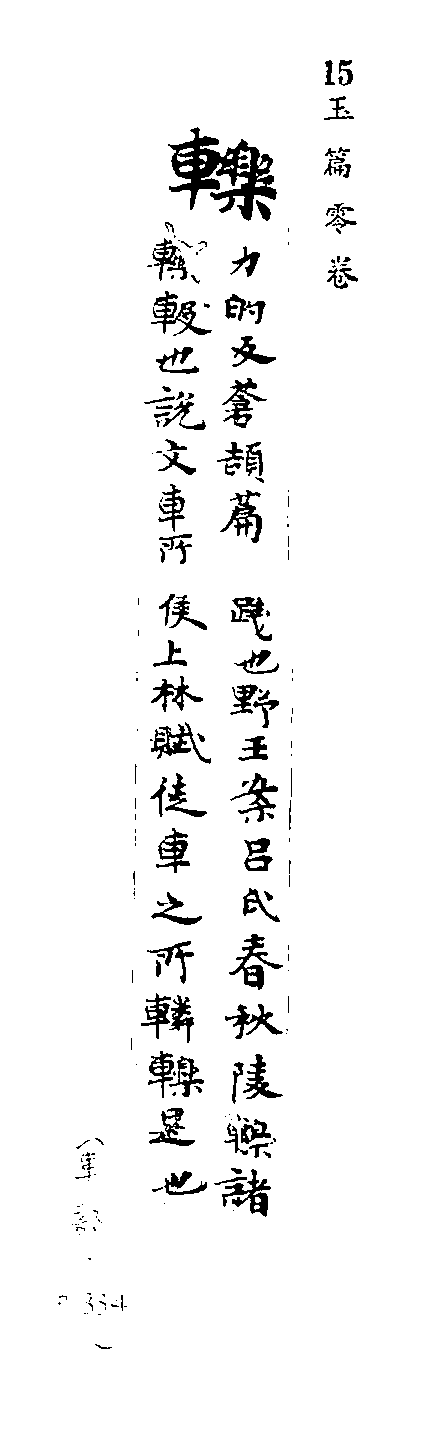 15玉篇零卷
轢
力的反蒼頡篇
轢輾也說文車所
踐也野王案呂氏春秋陵轢諸
侯上林賦徒車之所轔轢是也
(車部·P334)